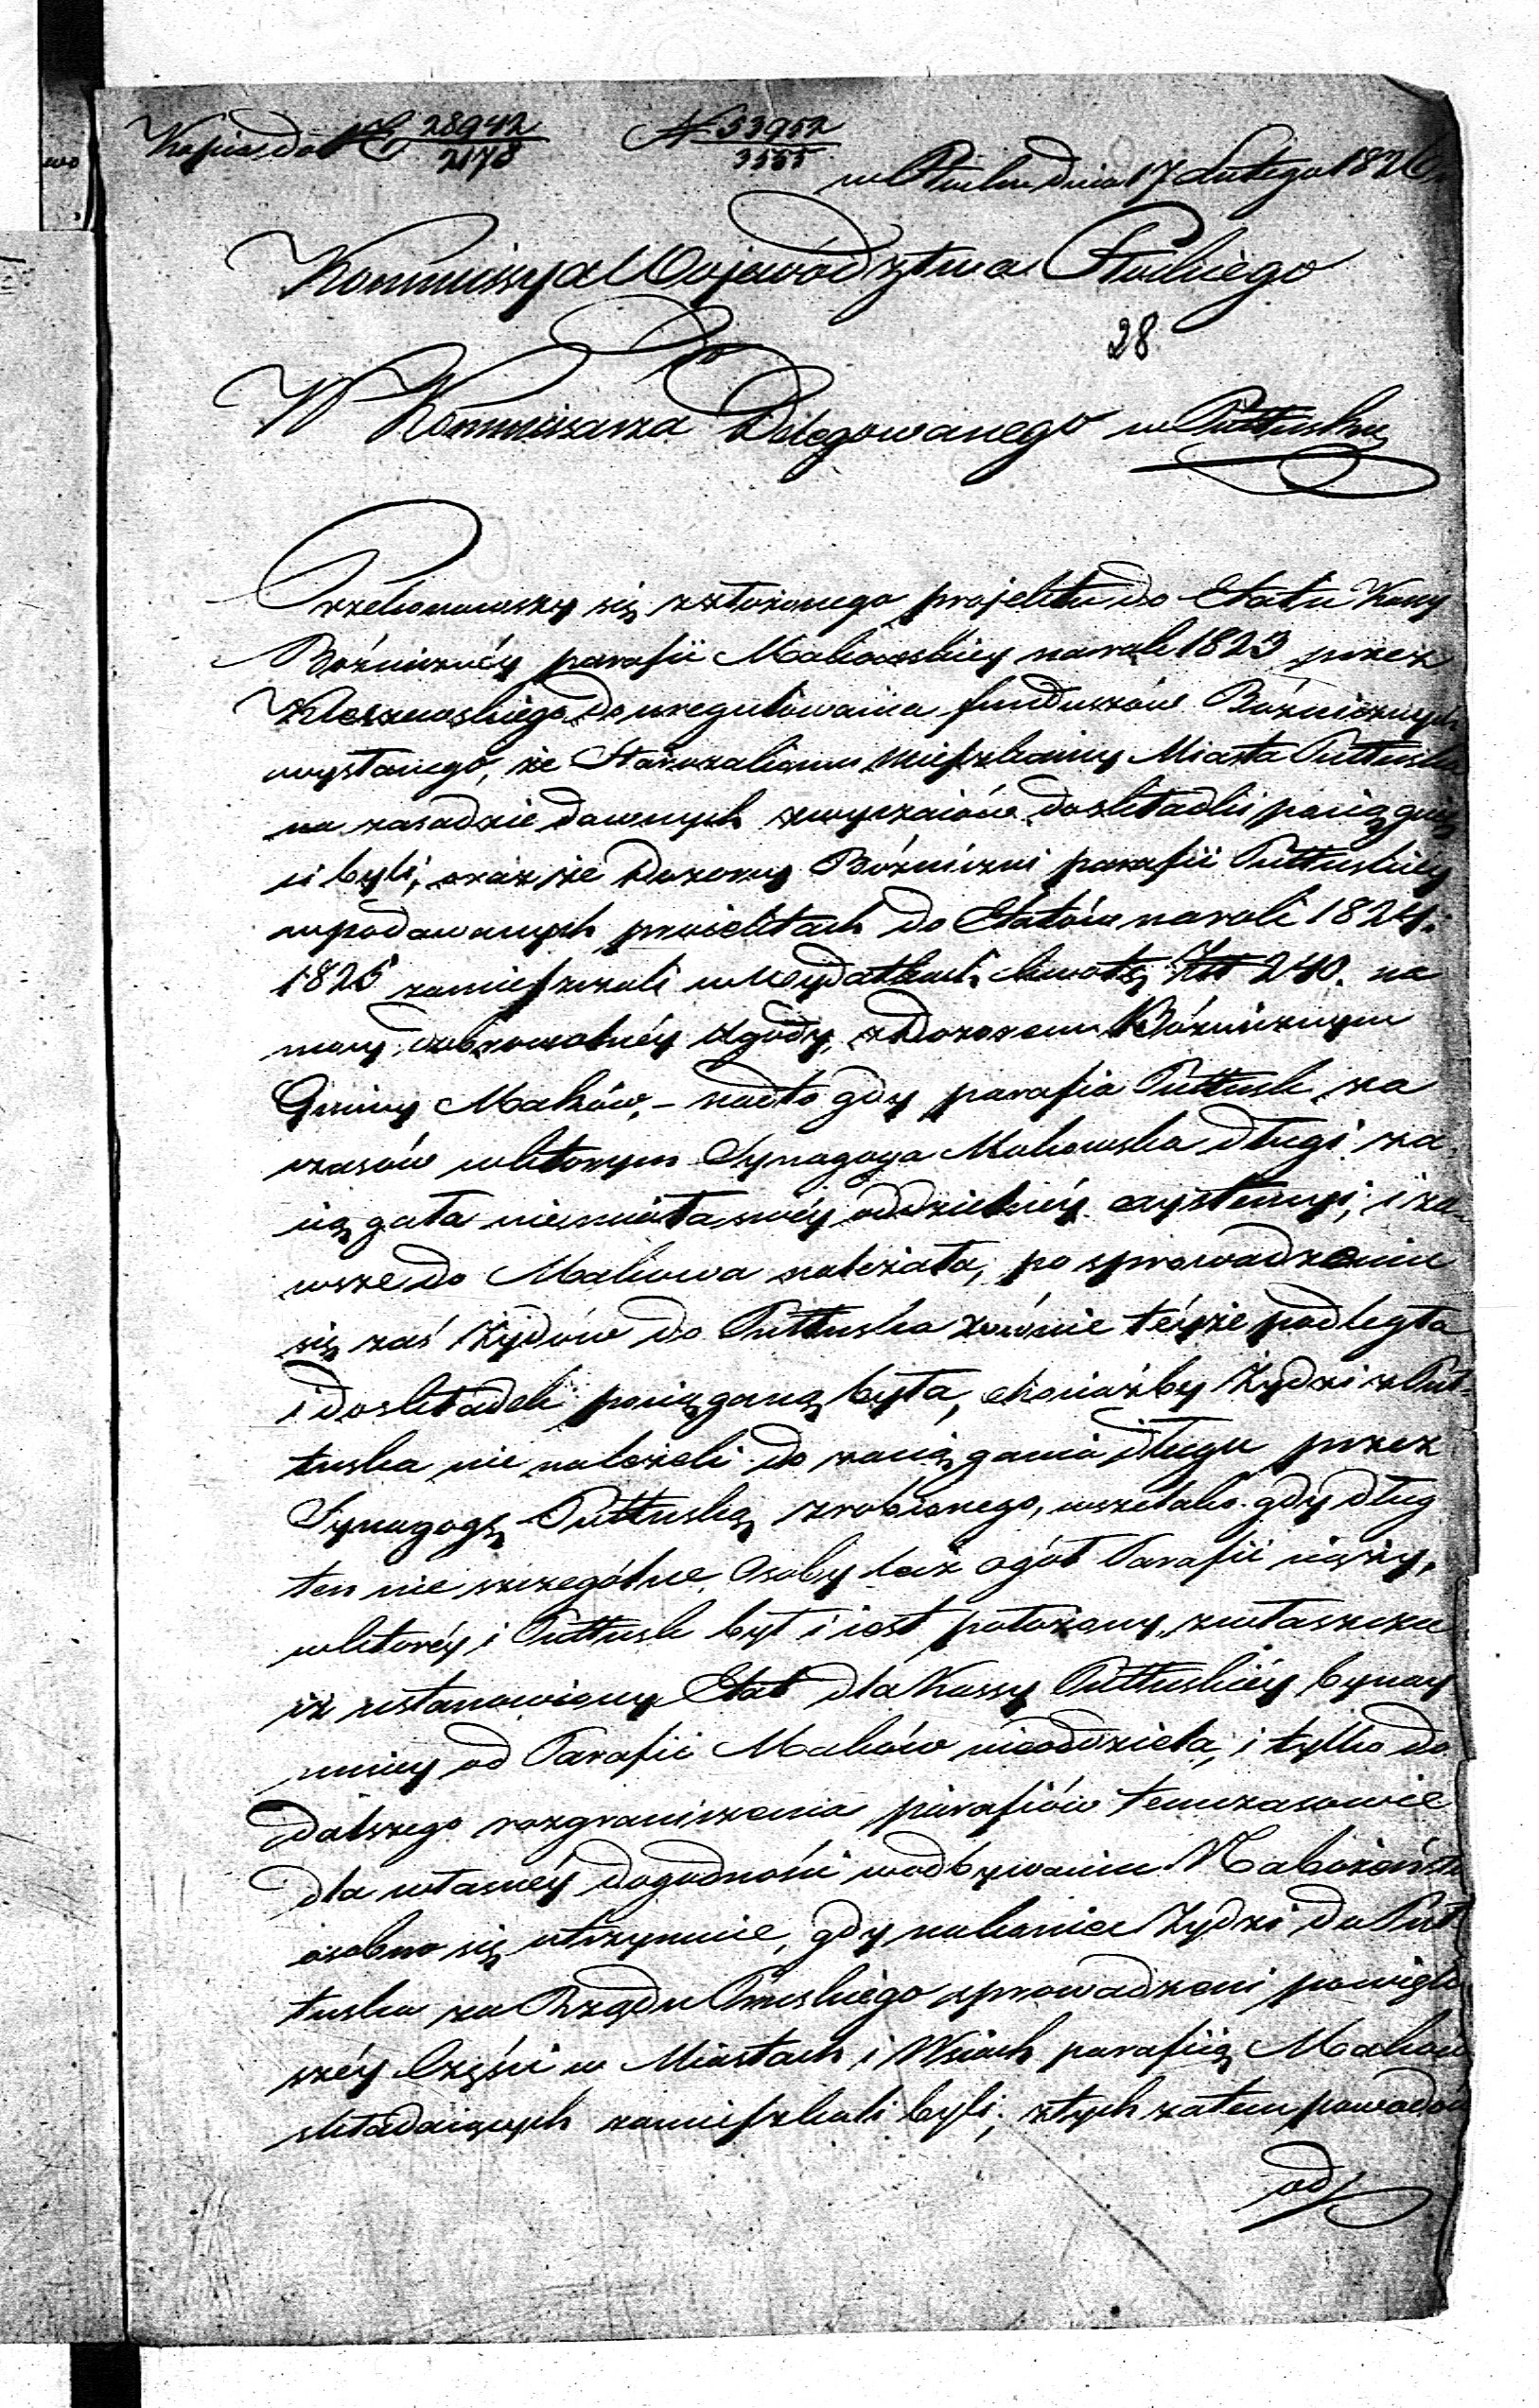 Kopia do N 28942/2178 N 53952/3555
w Płocku dnia 17 Lutego 1826
Kommissya Województwa Płockiego
Do
28
W Kommissarza Delegowanego w Pułtusku
Przekonawszy się z złożonego projektu do Etatu Kassy
Bóźniczney parafii Makowskiey na rok 1823 przez
do uregulowania funduszów Bóźnicznych
wysłanego, że Starozakonni mieszkańcy Miasta Pułtuska
na zasadzie dawnych zwyczaiów do składki pociągnię
ci byli, oraz że Dozory Bóźniczni parafii Pułtuskiey
w podawanych proiektach do Etatów na rok 1824.
1825 zamieszczali w Wydatkach kwotę Złt 240. na
mocy dobrowolnéy zgody, z Dozorem Bóźnicznym
Gminy Maków, – nadto gdy parafia Pułtusk za
czasów w którym Synagoga Makowska długi za
ciągała niemiała swéy oddzielnéy exystencyi, i za-
wsze do Makowa należała, po sprowadzeniu
się zaś Żydów do Pułtuska równie téyże podległa
i do składek pociąganą była, chociażby Żydzi z Puł-
tuska nie należeli do zaciągania długu przez
Synagogę Pułtuską zrobionego, wszelako gdy dług
ten nie szczególne Osoby lecz ogół Parafii ciąży,
w któréy i Pułtusk był i iest położony, zwłaszcza
iż ustanowiony Etat dla Kassy Pułtuskiéy bynay
mniey od Parafii Maków nieoddziela, i tylko do
dalszego rozgraniczenia parafiów temczasowie
dla własnéy dogodności w odbywaniu Nabożeństw
osobno się utrzymuie, gdy nakoniec Żydzi do Puł
tuska za Rządu Pruskiego sprowadzeni powięk
széy Części w Miastach i Wsiach parafiią Maków
składaiących zamieszkali byli, z tych zatem powodów
od